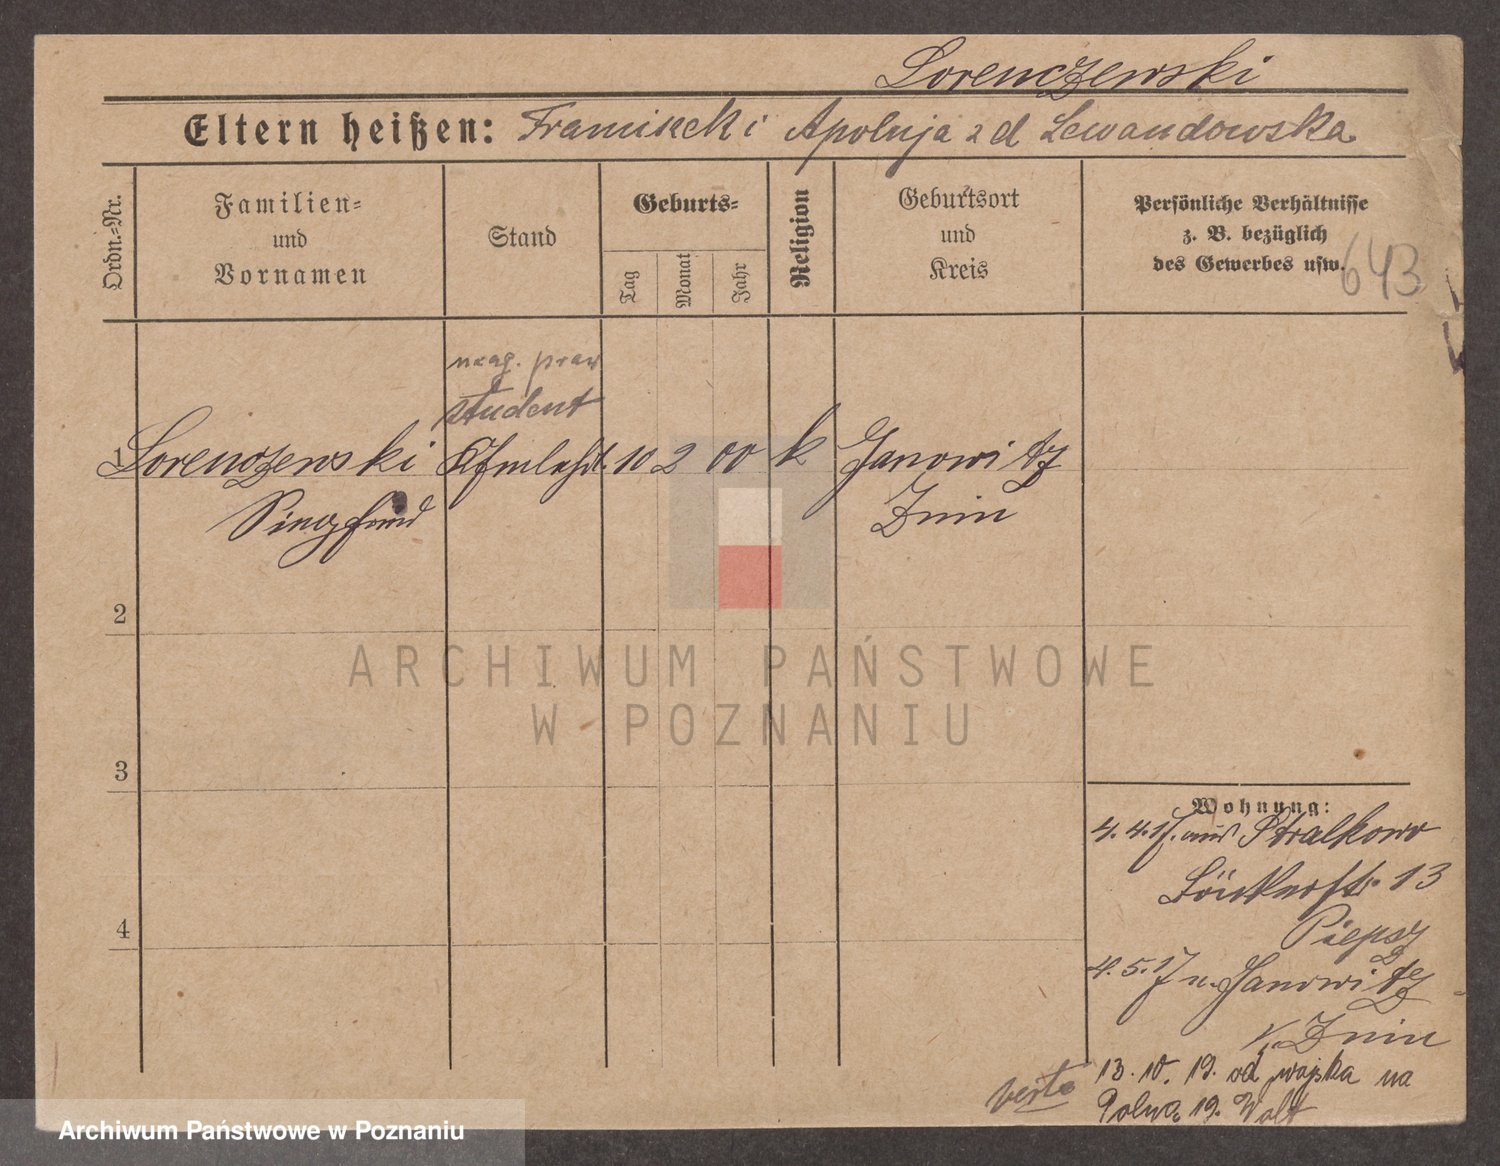 Lorenczewski
Eltern heißen: Franciszek i Apolonja z d Lewandowska
Ordn.-Nr.
Familien-
und
Vornamen
Stand
Geburts-
Tag
Monat
Jahr
Religion
Geburtsort
und
Kreis
Persönliche Verhältnisse
z. B. bezüglich
des Gewerbes usw.
643
mag. praw
student
1 Lorenczewski 10 2 00 k Janowitz
Siegfried Znin
2
3
4
ARCHIWUM PAŃSTWOWE
W POZNANIU
Wohnung:
4. 4. 17. aus Stralkowo
13
4. 5. 17 n. Janowitz
Znin
13. 10. 19. od wojska na
19.
verte
Archiwum Państwowe w Poznaniu